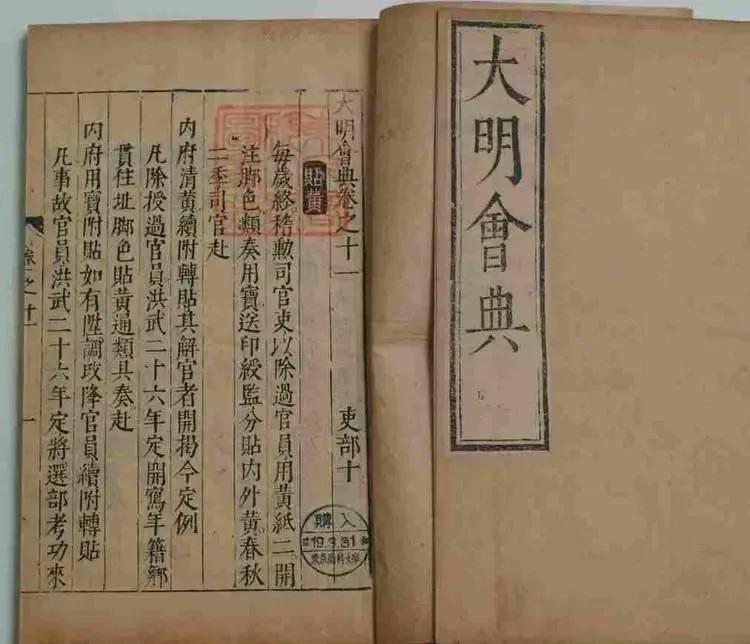 大明會典
大明會典卷之十一
吏部十
貼黃
每歲終稽勳司官吏以除過官員用黃紙二開
注脚色類奏用寶送印綬監分貼內外黃春秋
二季司官赴
內府清黃續附轉貼其解官者開揭今定例
凡除授過官員洪武二十六年定開寫年籍鄉
貫住址脚色貼黃通類具奏赴
內府用寶附貼如有陞調改降官員續附轉貼
凡事故官員洪武二十六年定將選部考功來
卷之十一
一
購入
19.9.31